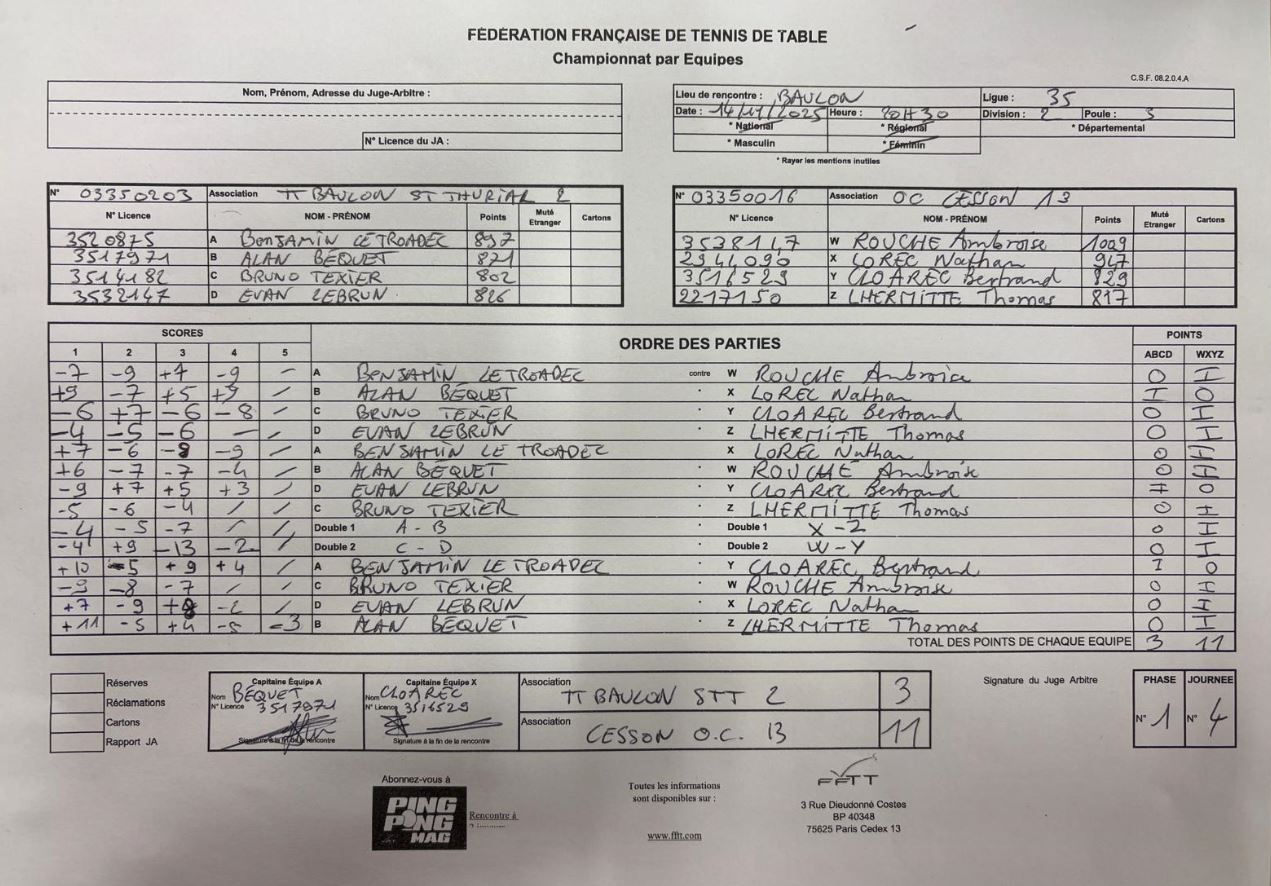 FÉDÉRATION FRANÇAISE DE TENNIS DE TABLE
Championnat par Equipes
C.S.F. 08.2.0.4.A
Nom, Prénom, Adresse du Juge-Arbitre :
N° Licence du JA :
Lieu de rencontre : BAULON Ligue : 35
Date : 14/11/2025 Heure : 20H30 Division : 2 Poule : 3
* National * Régional * Départemental
* Masculin * Féminin
* Rayer les mentions inutiles
N° 03350203 Association TT BAULON ST THURIAL 2
N° Licence NOM - PRÉNOM Points Muté Etranger Cartons
3520875 A BENJAMIN LE TROADEC 897
3517971 B ALAN BÉQUET 821
3514182 C BRUNO TEXIER 802
3532147 D EVAN LEBRUN 826
N° 03350016 Association OC CESSON 13
N° Licence NOM - PRÉNOM Points Muté Etranger Cartons
3538147 W ROUCHE Ambroise 1009
2944090 X LOREC Nathan 947
3516529 Y CLOAREC Bertrand 829
2217150 Z LHERMITTE Thomas 817
SCORES ORDRE DES PARTIES POINTS
1 2 3 4 5 ABCD WXYZ
-7 -9 +7 -9 / A BENJAMIN LE TROADEC contre W ROUCHE Ambroise 0 I
+9 -7 +5 +9 / B ALAN BÉQUET X LOREC Nathan I 0
-6 +7 -6 -8 / C BRUNO TEXIER Y CLOAREC Bertrand 0 I
-4 -5 -6 - / D EVAN LEBRUN Z LHERMITTE Thomas 0 I
+7 -6 -8 -9 / A BENJAMIN LE TROADEC X LOREC Nathan 0 I
+6 -7 -7 -4 / B ALAN BÉQUET W ROUCHE Ambroise 0 I
-9 +7 +5 +3 / D EVAN LEBRUN Y CLOAREC Bertrand I 0
-5 -6 -4 / / C BRUNO TEXIER Z LHERMITTE Thomas 0 I
-4 -5 -7 / / Double 1 A - B Double 1 X - Z 0 I
-4 +9 -13 -2 / Double 2 C - D Double 2 W - Y 0 I
+10 -5 +9 +4 / A BENJAMIN LE TROADEC Y CLOAREC Bertrand 1 0
-9 -8 -7 / / C BRUNO TEXIER W ROUCHE Ambroise 0 I
+7 -9 +8 -2 / D EVAN LEBRUN X LOREC Nathan 0 I
+11 -5 +4 -5 -3 B ALAN BÉQUET Z LHERMITTE Thomas 0 I
TOTAL DES POINTS DE CHAQUE EQUIPE 3 11
Réserves
Réclamations
Cartons
Rapport JA
Capitaine Équipe A
Nom BÉQUET
N° Licence 3517971
Signature à la fin de la rencontre
Capitaine Équipe X
Nom CLOAREC
N° Licence 3516529
Signature à la fin de la rencontre
Association TT BAULON STT 2 3
Association CESSON O.C. 13 11
Signature du Juge Arbitre
PHASE JOURNEE
N° 1 N° 4
Abonnez-vous à
PING PONG MAG
Rencontre à
Toutes les informations
sont disponibles sur :
www.fftt.com
FFTT
3 Rue Dieudonné Costes
BP 40348
75625 Paris Cedex 13